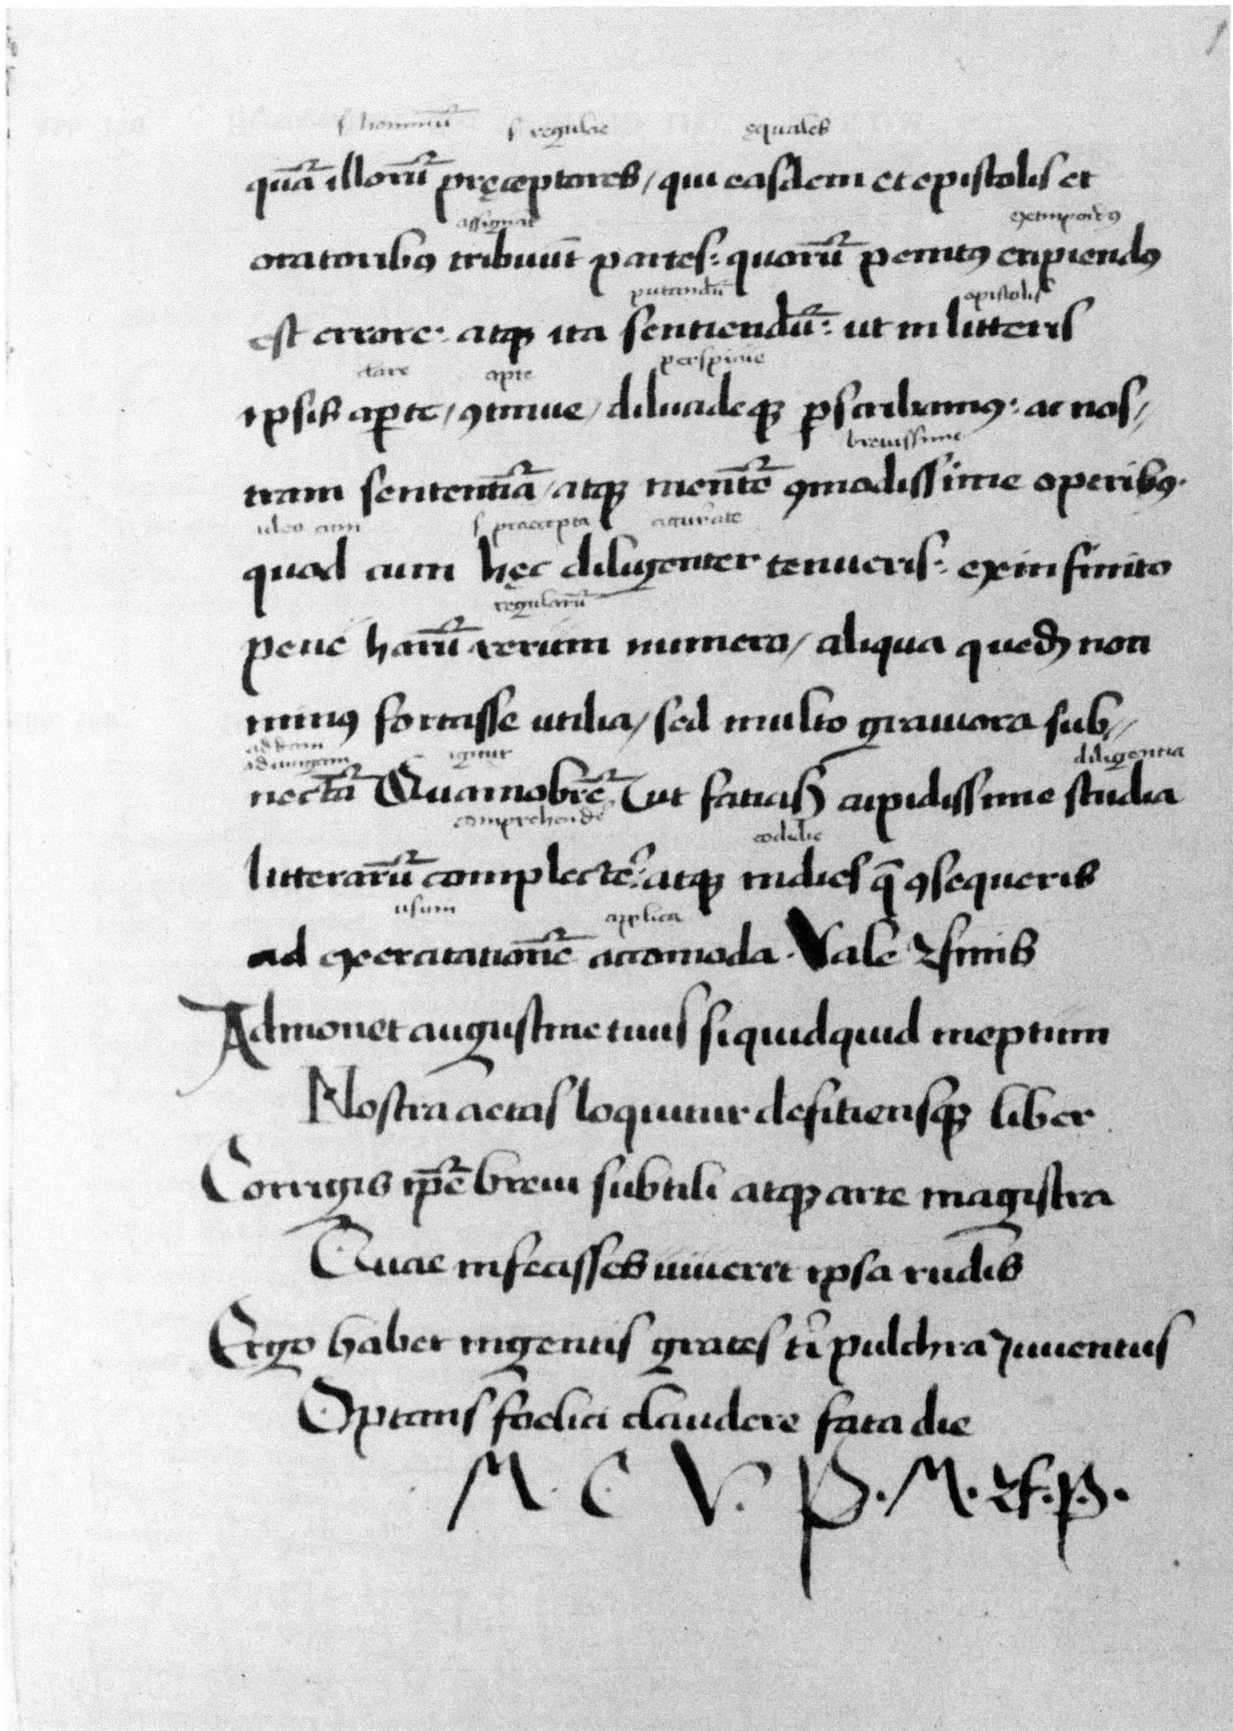 s. hominũ s. regulae ęquales
quã illorũ pręceptores / qui easdem et epistolis et
assignãt
oratoribꝰ tribuũt partes: quorũ penitꝰ eripiendꝰ
putandũ epistolis
est errore: atqꝫ ita sentiendũ: ut in litteris
clare apte perspicue
ipsis aꝑte / ꝯcinne / dilucideqꝫ ꝑscribamꝰ: ac nos/
breuissime
tram sententiã / atqꝫ mentẽ ꝯmodissime operibꝰ.
ideo cum s. praecepta accurate
quod cum hęc diligenter tenueris: ex infinito
regularũ
pene harũ rerum numero / aliqua quedã non
minꝰ fortasse utilia / sed multo grauiora sub//
addam
adiungam igitur diligentia
nectã Quamobrẽ ut facias cupidissime studia
comprehende cotidie
litterarũ complectere: atqꝫ indies q̃ ꝯsequeris
usum applica
ad exercitationẽ accomoda. Vale &finis
Admonet augustine tuus si quidquid ineptum
Nostra aetas loquitur desitiensqꝫ liber
Corrigis ip̃e breui subtili atqꝫ arte magistra
Quae ni fecisses uiueret ipsa rudis
Ergo habet ingentis grates tⁱ pulchra iuuentus
Optans foelici claudere fata die
M. C. V. P. M. &f. P.